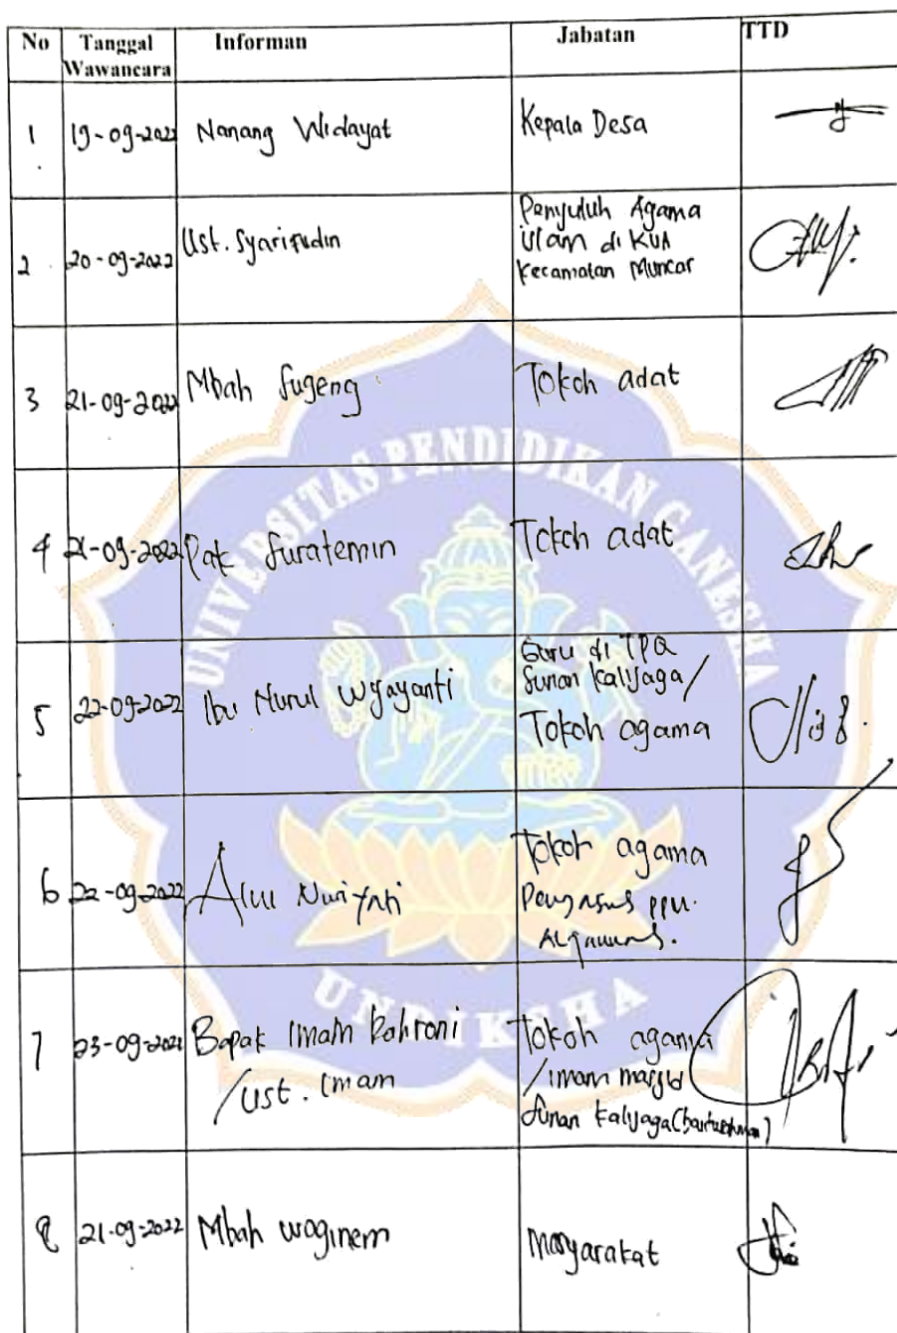 No Tanggal Wawancara Informan Jabatan TTD
1 19-09-2022 Nanang Widayat Kepala Desa
2 20-09-2022 Ust. Syarifudin Penyuluh Agama
islam di KUA
Kecamatan Muncar
3 21-09-2022 Mbah Sugeng Tokoh adat
4 21-09-2022 Pak Suratemin Tokoh adat
5 22-09-2022 Ibu Nurul Wijayanti Guru di TPQ
Sunan Kalijaga/
Tokoh agama
6 22-09-2022 Tokoh agama
7 23-09-2022 Bapak Imam Bahroni Tokoh agama
/Ust. Imam /imam masjid
Sunan Kalijaga
8 21-09-2022 Mbah Waginem Masyarakat
UNIVERSITAS PENDIDIKAN GANESHA
UNDIKSHA